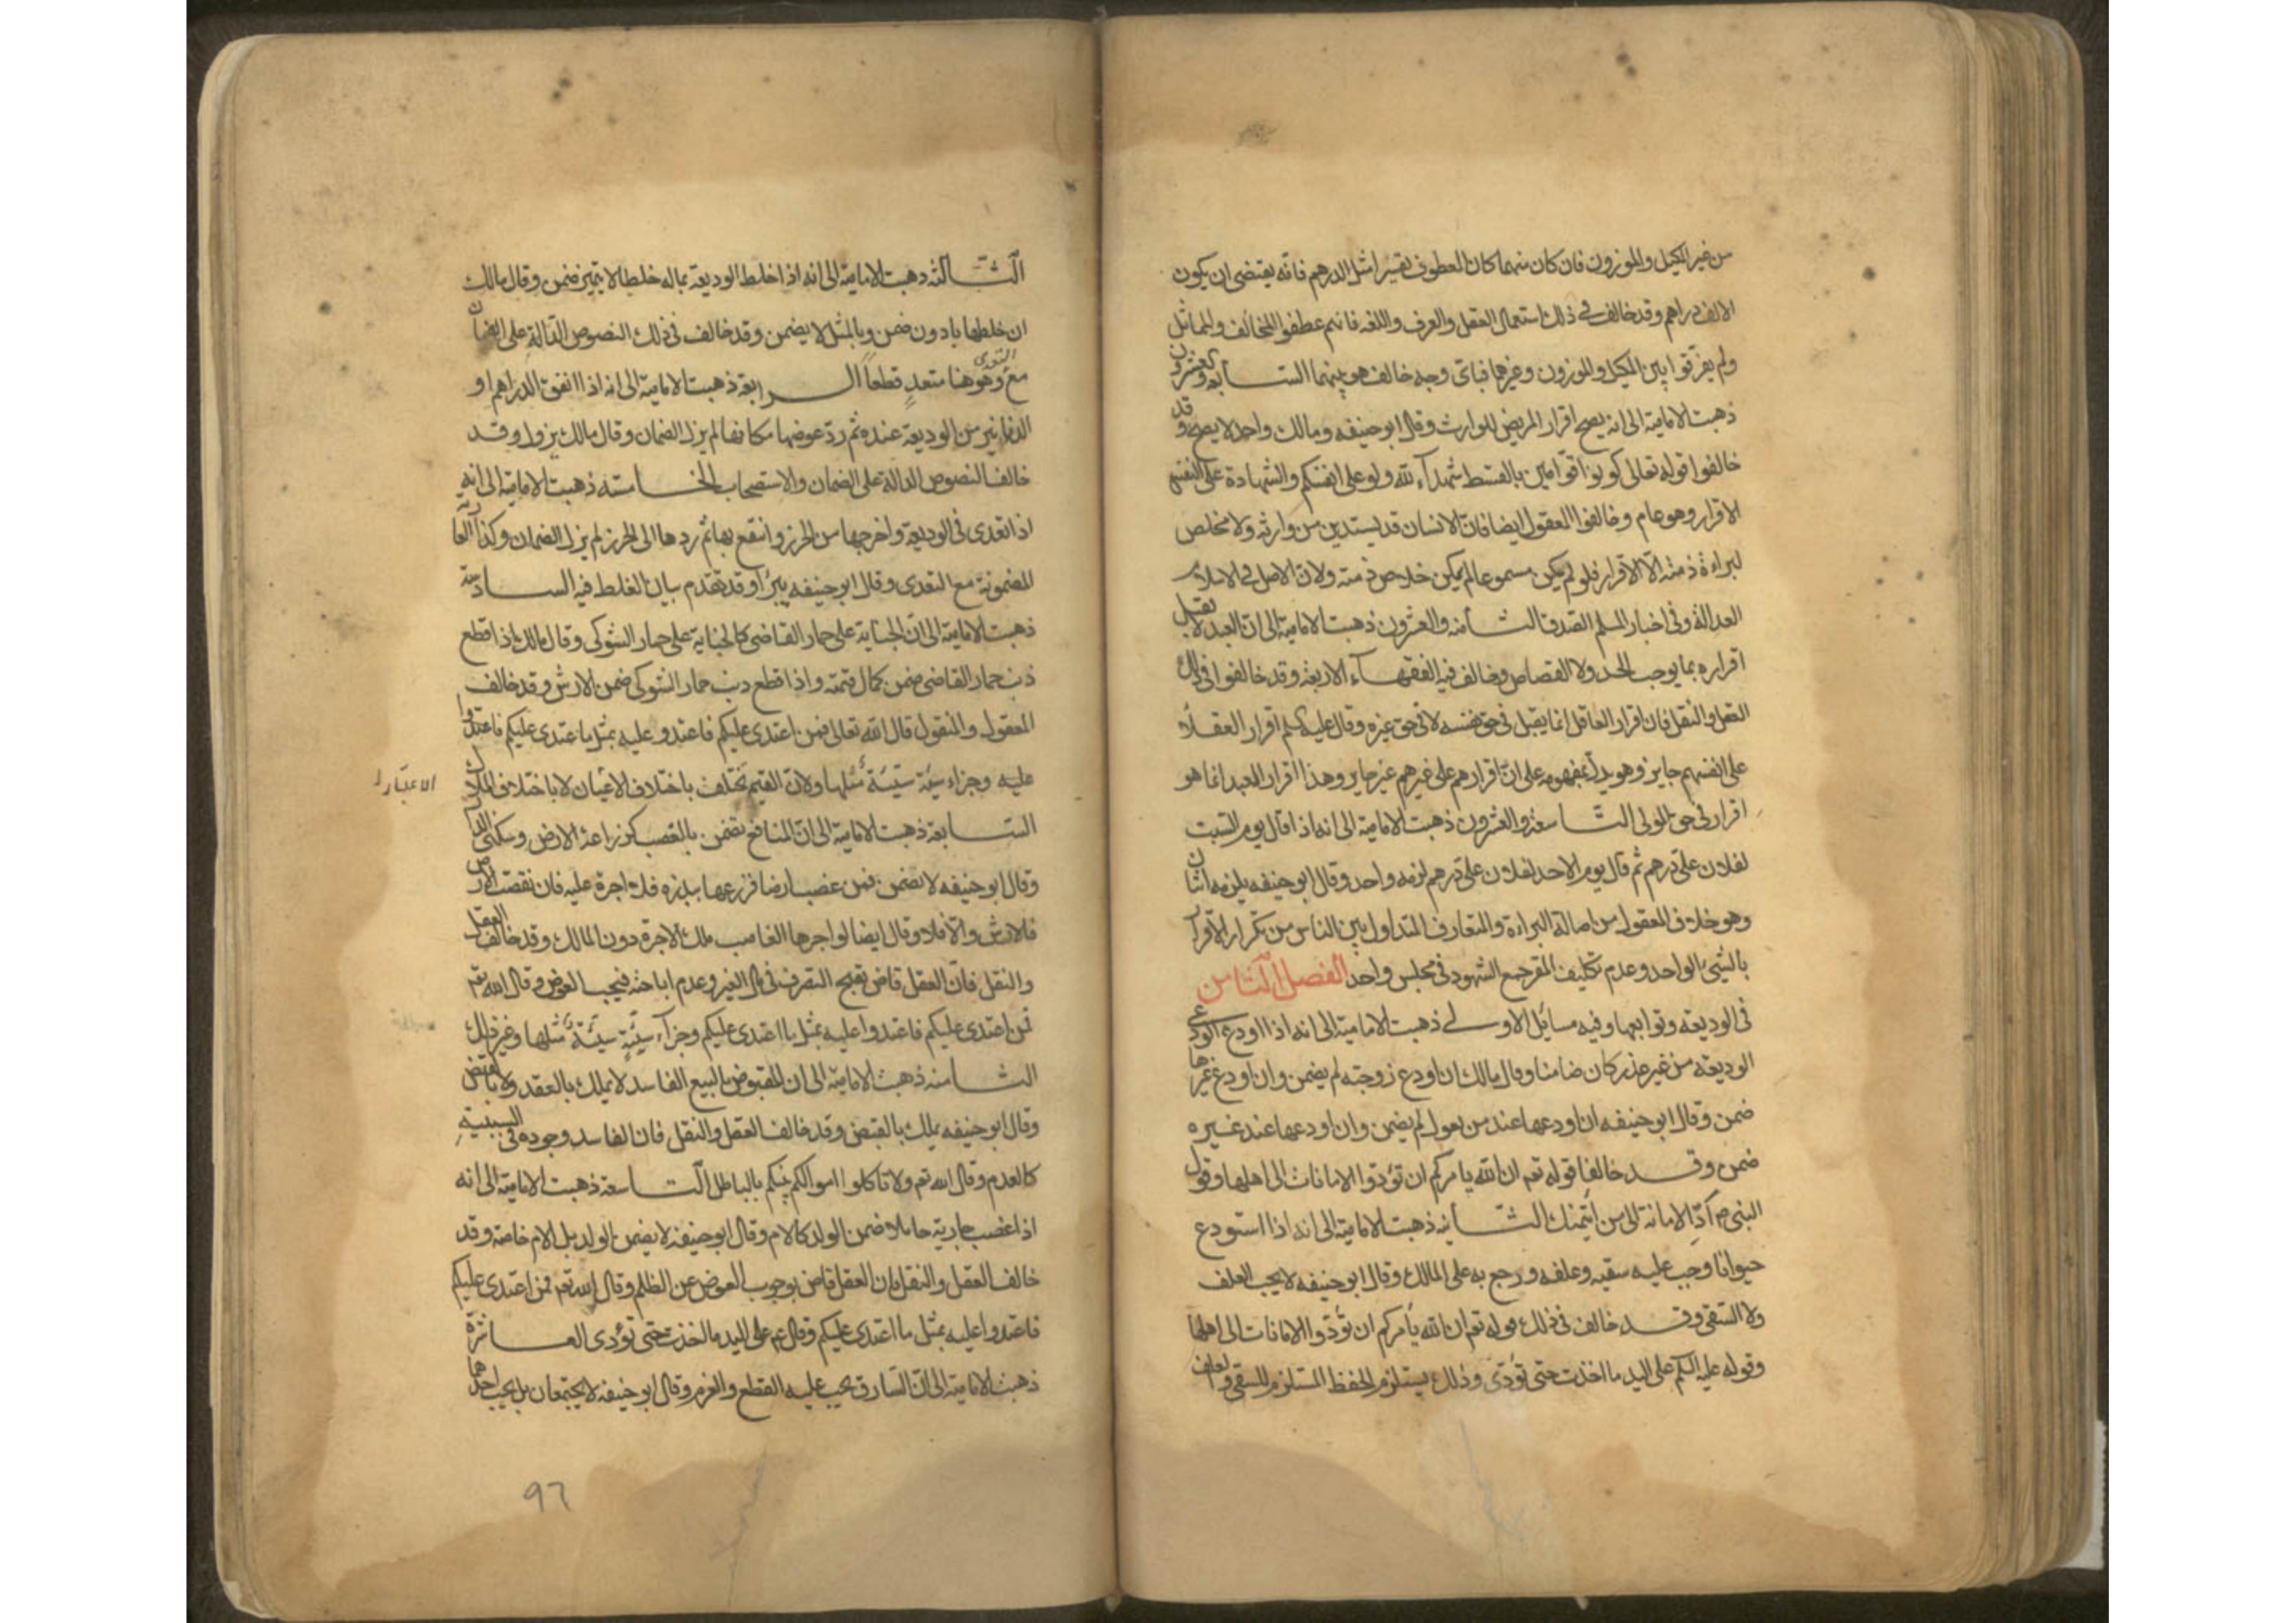 من غير المكيل والموزون فان كان منهما كان المعطوف تفسيرا مثل الدرهم فانه يقتضى ان يكون
الالف دراهم وقد خالف فى ذلك استعمال العقل والعرف واللغه فانهم عطفوا المخالف والمماثل
ولم يفرّقوا بين المكيل والموزون وغيرهما فباى وجه خالف هو بينهما السابعه والعشرون
ذهبت الامامية الى انه يصح اقرار المريض للوارث وقال ابو حنيفه ومالك واحمد لا يصح وقد
خالفوا قوله تعالى كونوا قوّامين بالقسط شهدآء لله ولو على انفسكم والشهادة على النفس
الاقرار وهو عام وخالفوا المعقول ايضا فان الانسان قد يستدين من وارثه ولا مخلص
لبراءة ذمته الّا الاقرار فلو لم يكن مسموعا لم يمكن خلاص ذمته ولان الاصل فى الاسلام
العدالة وفى اخبار المسلم الصدق الثامنه والعشرون ذهبت الامامية الى ان العبد لا يقبل
اقراره بما يوجب الحد ولا القصاص وخالف فيه الفقهآء الاربعة وقد خالفوا فى ذلك
العقل والنقل فان اقرار العاقل انما يقبل فى حق نفسه لا فى حق غيره وقال عليه السلم اقرار العقلا
على انفسهم جايز وهو يدل بمفهومه على ان اقرارهم على غيرهم غير جايز وهذا اقرار العبد انما هو
اقرار فى حق المولى التاسعة والعشرون ذهبت الامامية الى انه اذا قال يوم السبت
لفلان علىّ درهم ثم قال يوم الاحد لفلان علىّ درهم لزمه واحد وقال ابو حنيفه يلزمه اثنان
وهو خلاف المعقول من اصالة البراءة والمتعارف المتداول بين الناس من تكرار الاقرار
بالشئ الواحد وعدم تكليف المقر جمع الشهود فى مجلس واحد الفصل الثامن
فى الوديعه وتوابعها وفيه مسائل الاولى ذهبت الامامية الى انه اذا اودع الودعى
الوديعه من غير عذر كان ضامنا وقال مالك ان اودع زوجته لم يضمن وان اودع غيرها
ضمن وقال ابو حنيفه ان اودعها عند من يعول لم يضمن وان اودعها عند غيره
ضمن وقد خالفا قوله تعم ان الله يامركم ان تؤدوا الامانات الى اهلها وقول
النبى ص ادّ الامانة الى من ائتمنك الثانيه ذهبت الامامية الى انه اذا استودع
حيوانا وجب عليه سقيه وعلفه ورجع به على المالك وقال ابو حنيفه لا يجب العلف
ولا السقى وقد خالف فى ذلك قوله تعم ان الله يامركم ان تؤدّوا الامانات الى اهلها
وقوله عليه السلم على اليد ما اخذت حتى تؤدّى وذلك يستلزم الحفظ المستلزم للسقى والعلف
الثالثه ذهبت الامامية الى انه اذا خلط الوديعة بماله خلطا لا يتميز ضمن وقال مالك
ان خلطها بادون ضمن وبالمثل لا يضمن وقد خالف فى ذلك النصوص الدّالة على الضمان
مع التعدى وهو هنا متعدٍ قطعاً الرابعة ذهبت الامامية الى انه اذا انفق الدراهم او
الدنانير من الوديعة عنده ثم ردّ عوضها مكانها لم يزل الضمان وقال مالك يزول وقد
خالف النصوص الدالة على الضمان والاستصحاب الخامسة ذهبت الامامية الى انه
اذا تعدى فى الوديعة واخرجها من الحرز وانتفع بها ثم ردها الى الحرز لم يزل الضمان وكذا العارية
المضمونة مع التعدى وقال ابو حنيفه يبرأ وقد تقدم بيان الغلط فيه السادسة
ذهبت الامامية الى ان الجناية على حمار القاضى كالجناية على حمار الشوكى وقال مالك اذا قطع
ذنب حمار القاضى ضمن كمال قيمته واذا قطع ذنب حمار الشوكى ضمن الارش وقد خالف
المعقول والمنقول قال الله تعالى فمن اعتدى عليكم فاعتدوا عليه بمثل ما اعتدى عليكم فاعتدوا
عليه وجزاء سيّئة سيّئة مثلها ولان القيم تختلف باختلاف الاعيان لا باختلاف الملاك
الاعتبار
السابعة ذهبت الامامية الى ان المنافع تضمن بالغصب كزراعة الارض وسكنى الدار
وقال ابو حنيفه لا يضمن فمن غصب ارضا فزرعها ببذره فلا اجرة عليه فان نقصت الارض
فالارش والا فلا وقال ايضا لو اجرها الغاصب ملك الاجرة دون المالك وقد خالف العقل
والنقل فان العقل قاض بقبح التصرف فى مال الغير وعدم اباحته فيجب العوض وقال الله تعم
فمن اعتدى عليكم فاعتدوا عليه بمثل ما اعتدى عليكم وجزآء سيّئةٍ سيّئةٌ مثلها وغير ذلك
الثامنه ذهبت الامامية الى ان المقبوض بالبيع الفاسد لا يملك بالعقد ولا بالقبض
وقال ابو حنيفه يملك بالقبض وقد خالف العقل والنقل فان الفاسد وجوده فى السببية
كالعدم وقال الله تعم ولا تاكلوا اموالكم بينكم بالباطل التاسعة ذهبت الامامية الى انه
اذا غصب جارية حاملا ضمن الولد كالام وقال ابو حنيفه لا يضمن الولد بل الام خاصة وقد
خالف العقل والنقل فان العقل قاض بوجوب العوض عن الظلم وقال الله تعم فمن اعتدى عليكم
فاعتدوا عليه بمثل ما اعتدى عليكم وقال عم على اليد ما اخذت حتى تؤدى العاشرة
ذهبت الامامية الى ان السارق يجب عليه القطع والغرم وقال ابو حنيفه لا يجتمعان بل يجب احدهما
٩٦